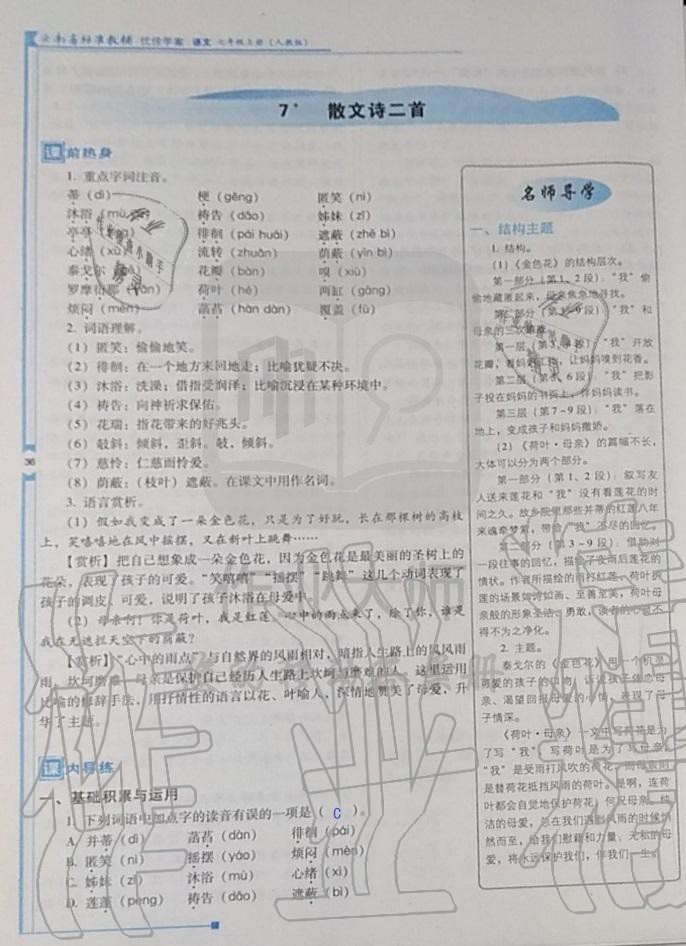 云南省标准教辅 优佳学案 语文 七年级上册（人教版）
7* 散文诗二首
课前热身
1. 重点字词注音。
蒂（dì） 梗（gěng） 匿笑（nì）
沐浴（mù） 祷告（dǎo） 姊妹（zǐ）
亭亭 徘徊（pái huái） 遮蔽（zhē bì）
心绪（xù） 流转（zhuǎn） 荫蔽（yìn bì）
泰戈尔 花瓣（bàn） 嗅（xiù）
罗摩衍那 荷叶（hé） 两缸（gāng）
烦闷（mèn） 菡萏（hàn dàn） 覆盖（fù）
2. 词语理解。
（1）匿笑：偷偷地笑。
（2）徘徊：在一个地方来回地走；比喻犹疑不决。
（3）沐浴：洗澡；借指受润泽；比喻沉浸在某种环境中。
（4）祷告：向神祈求保佑。
（5）花瑞：指花带来的好兆头。
（6）攲斜：倾斜，歪斜。攲，倾斜。
（7）慈怜：仁慈而怜爱。
（8）荫蔽：（枝叶）遮蔽。在课文中用作名词。
3. 语言赏析。
（1）假如我变成了一朵金色花，只是为了好玩，长在那棵树的高枝
上，笑嘻嘻地在风中摇摆，又在新叶上跳舞……
【赏析】把自己想象成一朵金色花，因为金色花是最美丽的圣树上的
花朵，表现了孩子的可爱。“笑嘻嘻”“摇摆”“跳舞”这几个动词表现了
孩子的调皮、可爱，说明了孩子沐浴在母爱中。
（2）母亲啊！你是荷叶，我是红莲，心中的雨点来了，除了你，谁是
我在无遮拦天空下的荫蔽？
【赏析】“心中的雨点”与自然界的风雨相对，暗指人生路上的风风雨
雨、坎坷磨难。母亲是保护自己经历人生路上坎坷与磨难的人。这里运用
比喻的修辞手法，用抒情性的语言以花、叶喻人，深情地赞美了母爱，升
华了主题。
课内导练
一、基础积累与运用
1. 下列词语中加点字的读音有误的一项是（ C ）。
A. 并蒂（dì） 菡萏（dàn） 徘徊（pái）
B. 匿笑（nì） 摇摆（yáo） 烦闷（mèn）
C. 姊妹（zǐ） 沐浴（mù） 心绪（xì）
D. 莲蓬（péng） 祷告（dǎo） 遮蔽（bì）
36
名师导学
一、结构主题
1. 结构。
（1）《金色花》的结构层次。
第一部分（第1、2段）：“我”偷
偷地藏匿起来，母亲焦急地寻找。
第二部分（第3~9段）：“我”和
母亲的三次嬉戏。
第一层（第3、4段）：“我”开放
花瓣，看妈妈工作，让妈妈嗅到花香。
第二层（第5、6段）：“我”把影
子投在妈妈的书页上，伴妈妈读书。
第三层（第7~9段）：“我”落在
地上，变成孩子和妈妈撒娇。
（2）《荷叶·母亲》的篇幅不长，
大体可以分为两个部分。
第一部分（第1、2段）：叙写友
人送来莲花和“我”没有看莲花的时
间之久。故乡院里那些并蒂的红莲八年
来魂牵梦萦，带给“我”不尽的回忆。
第二部分（第3~9段）：借助对
一段往事的回忆，描绘了夜雨后莲花的
情状。作者所描绘的雨打红莲、荷叶护
莲的场景如诗如画、至善至美，荷叶母
亲般的形象圣洁、勇敢，读者的心灵不
得不为之净化。
2. 主题。
泰戈尔的《金色花》用一个机灵
可爱的孩子的口吻，诉说孩子依恋母
亲、渴望回报母爱的心情，表现了母
子情深。
《荷叶·母亲》一文中写荷花是为
了写“我”，写荷叶是为了写母亲。
“我”是受雨打风吹的荷花，而母亲则
是替荷花抵挡风雨的荷叶。是啊，连荷
叶都会自觉地保护荷花，何况母亲。纯
洁的母爱，总在我们遇到风雨的时候悄
然而至，给我们慰藉和力量；无私的母
爱，将永远保护我们，伴我们一生。